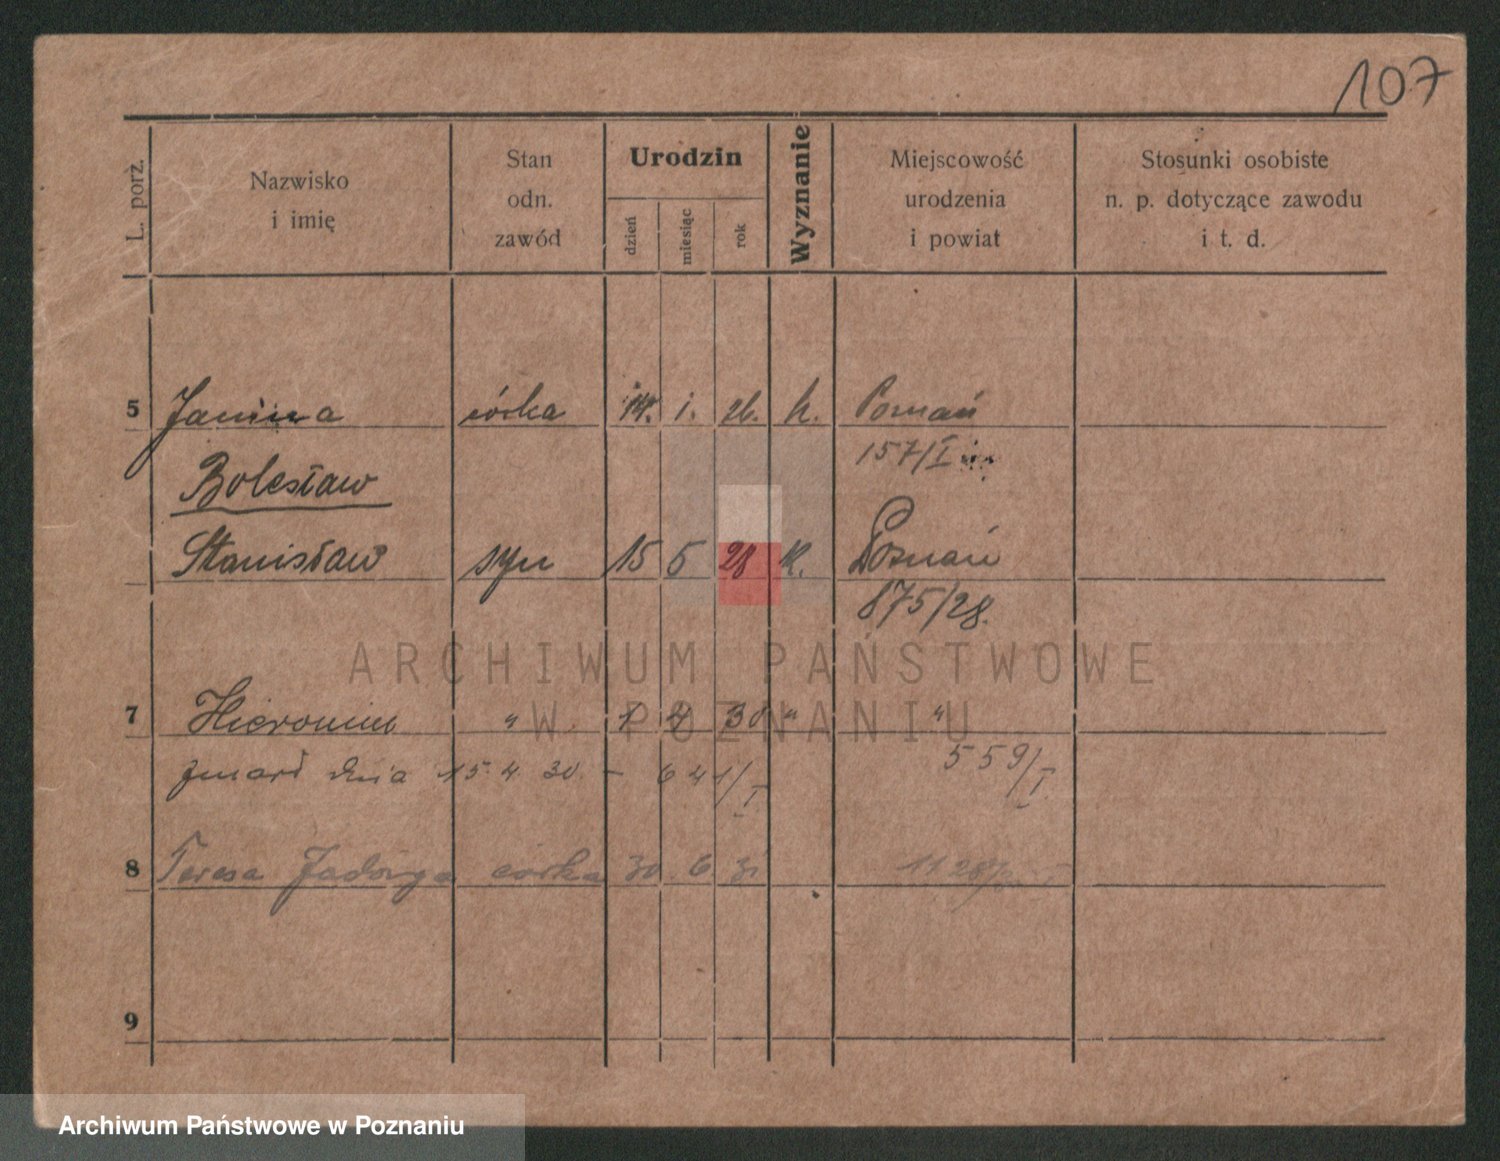 107
L. porz.
Nazwisko
i imię
Stan
odn.
zawód
Urodzin
dzień
miesiąc
rok
Wyznanie
Miejscowość
urodzenia
i powiat
Stosunki osobiste
n. p. dotyczące zawodu
i t. d.
5 Janina córka 14. 1. 26. k. Poznań
157/I
Bolesław
Stanisław syn 15 5 28 k. Poznań
875/28.
7 Hieronim " 1 4 30 " "
zmarł dnia 15. 4. 30. – 641/I
559/I
8 Teresa Jadwiga córka 30. 6 31
9
ARCHIWUM PAŃSTWOWE
W POZNANIU
Archiwum Państwowe w Poznaniu